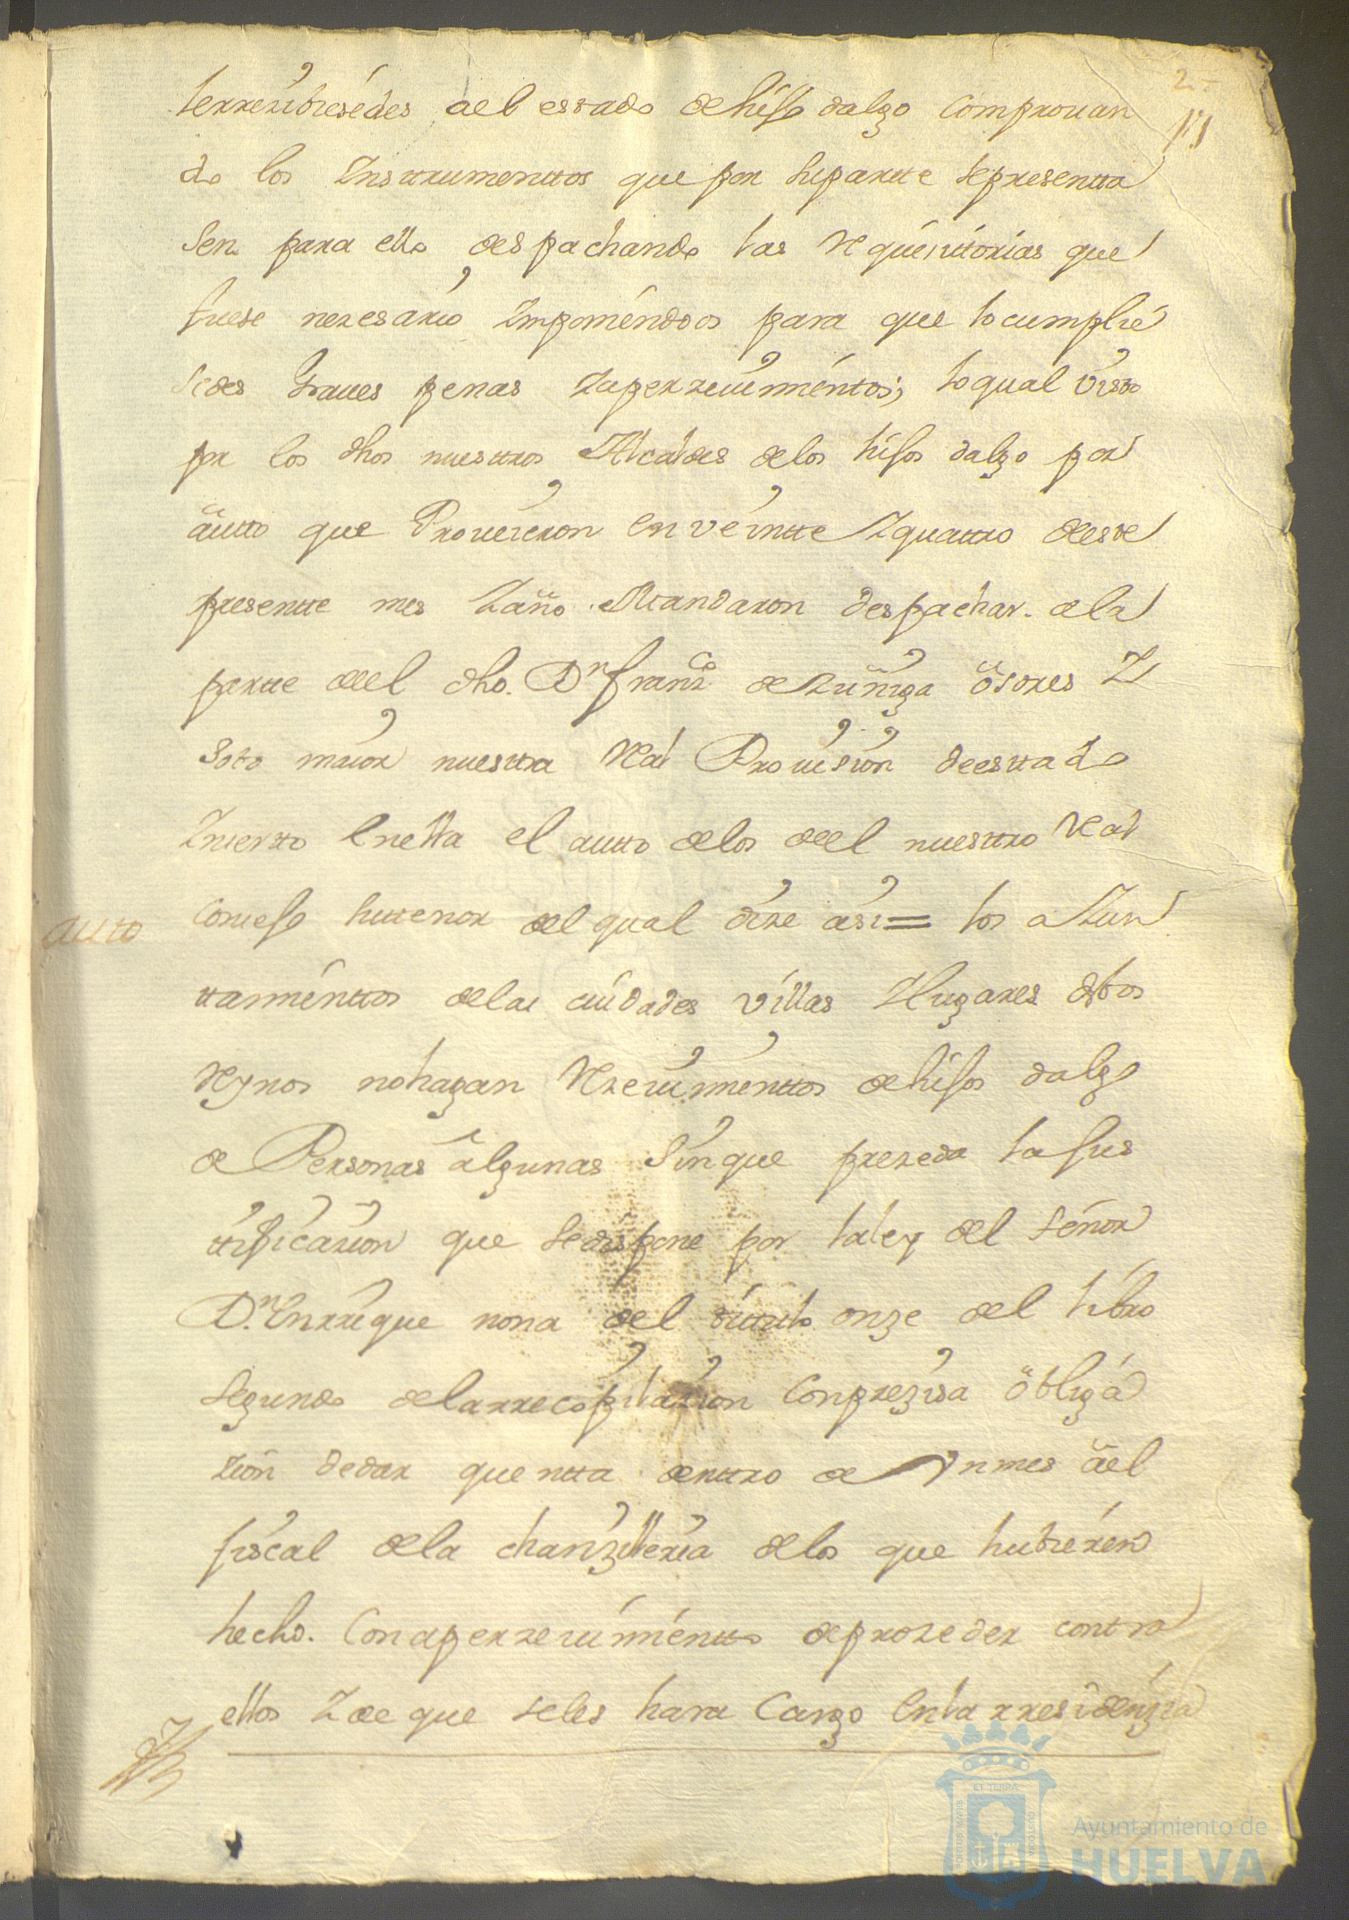 2
terrezibiesedes ael estado de hijo dalgo Comprouan
do los Instrumenttos que por su partte se presentta
sen para ello despachando las Requisittorias que
fuese nezesario Imponiendoos para que lo cumplie
sedes graues penas Y aperzeuimientos; lo qual visto
por los dhos nuesttros Alcaldes de los hijos dalgo por
autto que Proueieron en veintte Y quattro deeste
presentte mes Y año Mandaron despachar a la
partte deel dho. Dn. Franco de Zuñiga osores Y
Soto maior nuestra Real Prouision deesttado
Ynserto en ella el autto de los deel nuesttro Real
auto
Consejo su ttenor del qual dize asi = los aYun
ttamienttos de las ciudades villas Y lugares destos
Reynos no hagan Rezeuimienttos de hijos dalgo
de Personas algunas Sin que prezeda la Jus
ttificazion que se dispone por la ley del señor
Dn. Enrrique nona del titulo onze del libro
segundo de la rrecopilazion Con preziza obliga
zion de dar quentta denttro de Vn mes ael
fiscal de la chanzilleria de los que hubieren
hecho. Con aperzeuimientto de prozeder contra
ellos Y de que se les hara Cargo en la rresidenzia
ET TERRAE
Ayuntamiento de
HUELVA